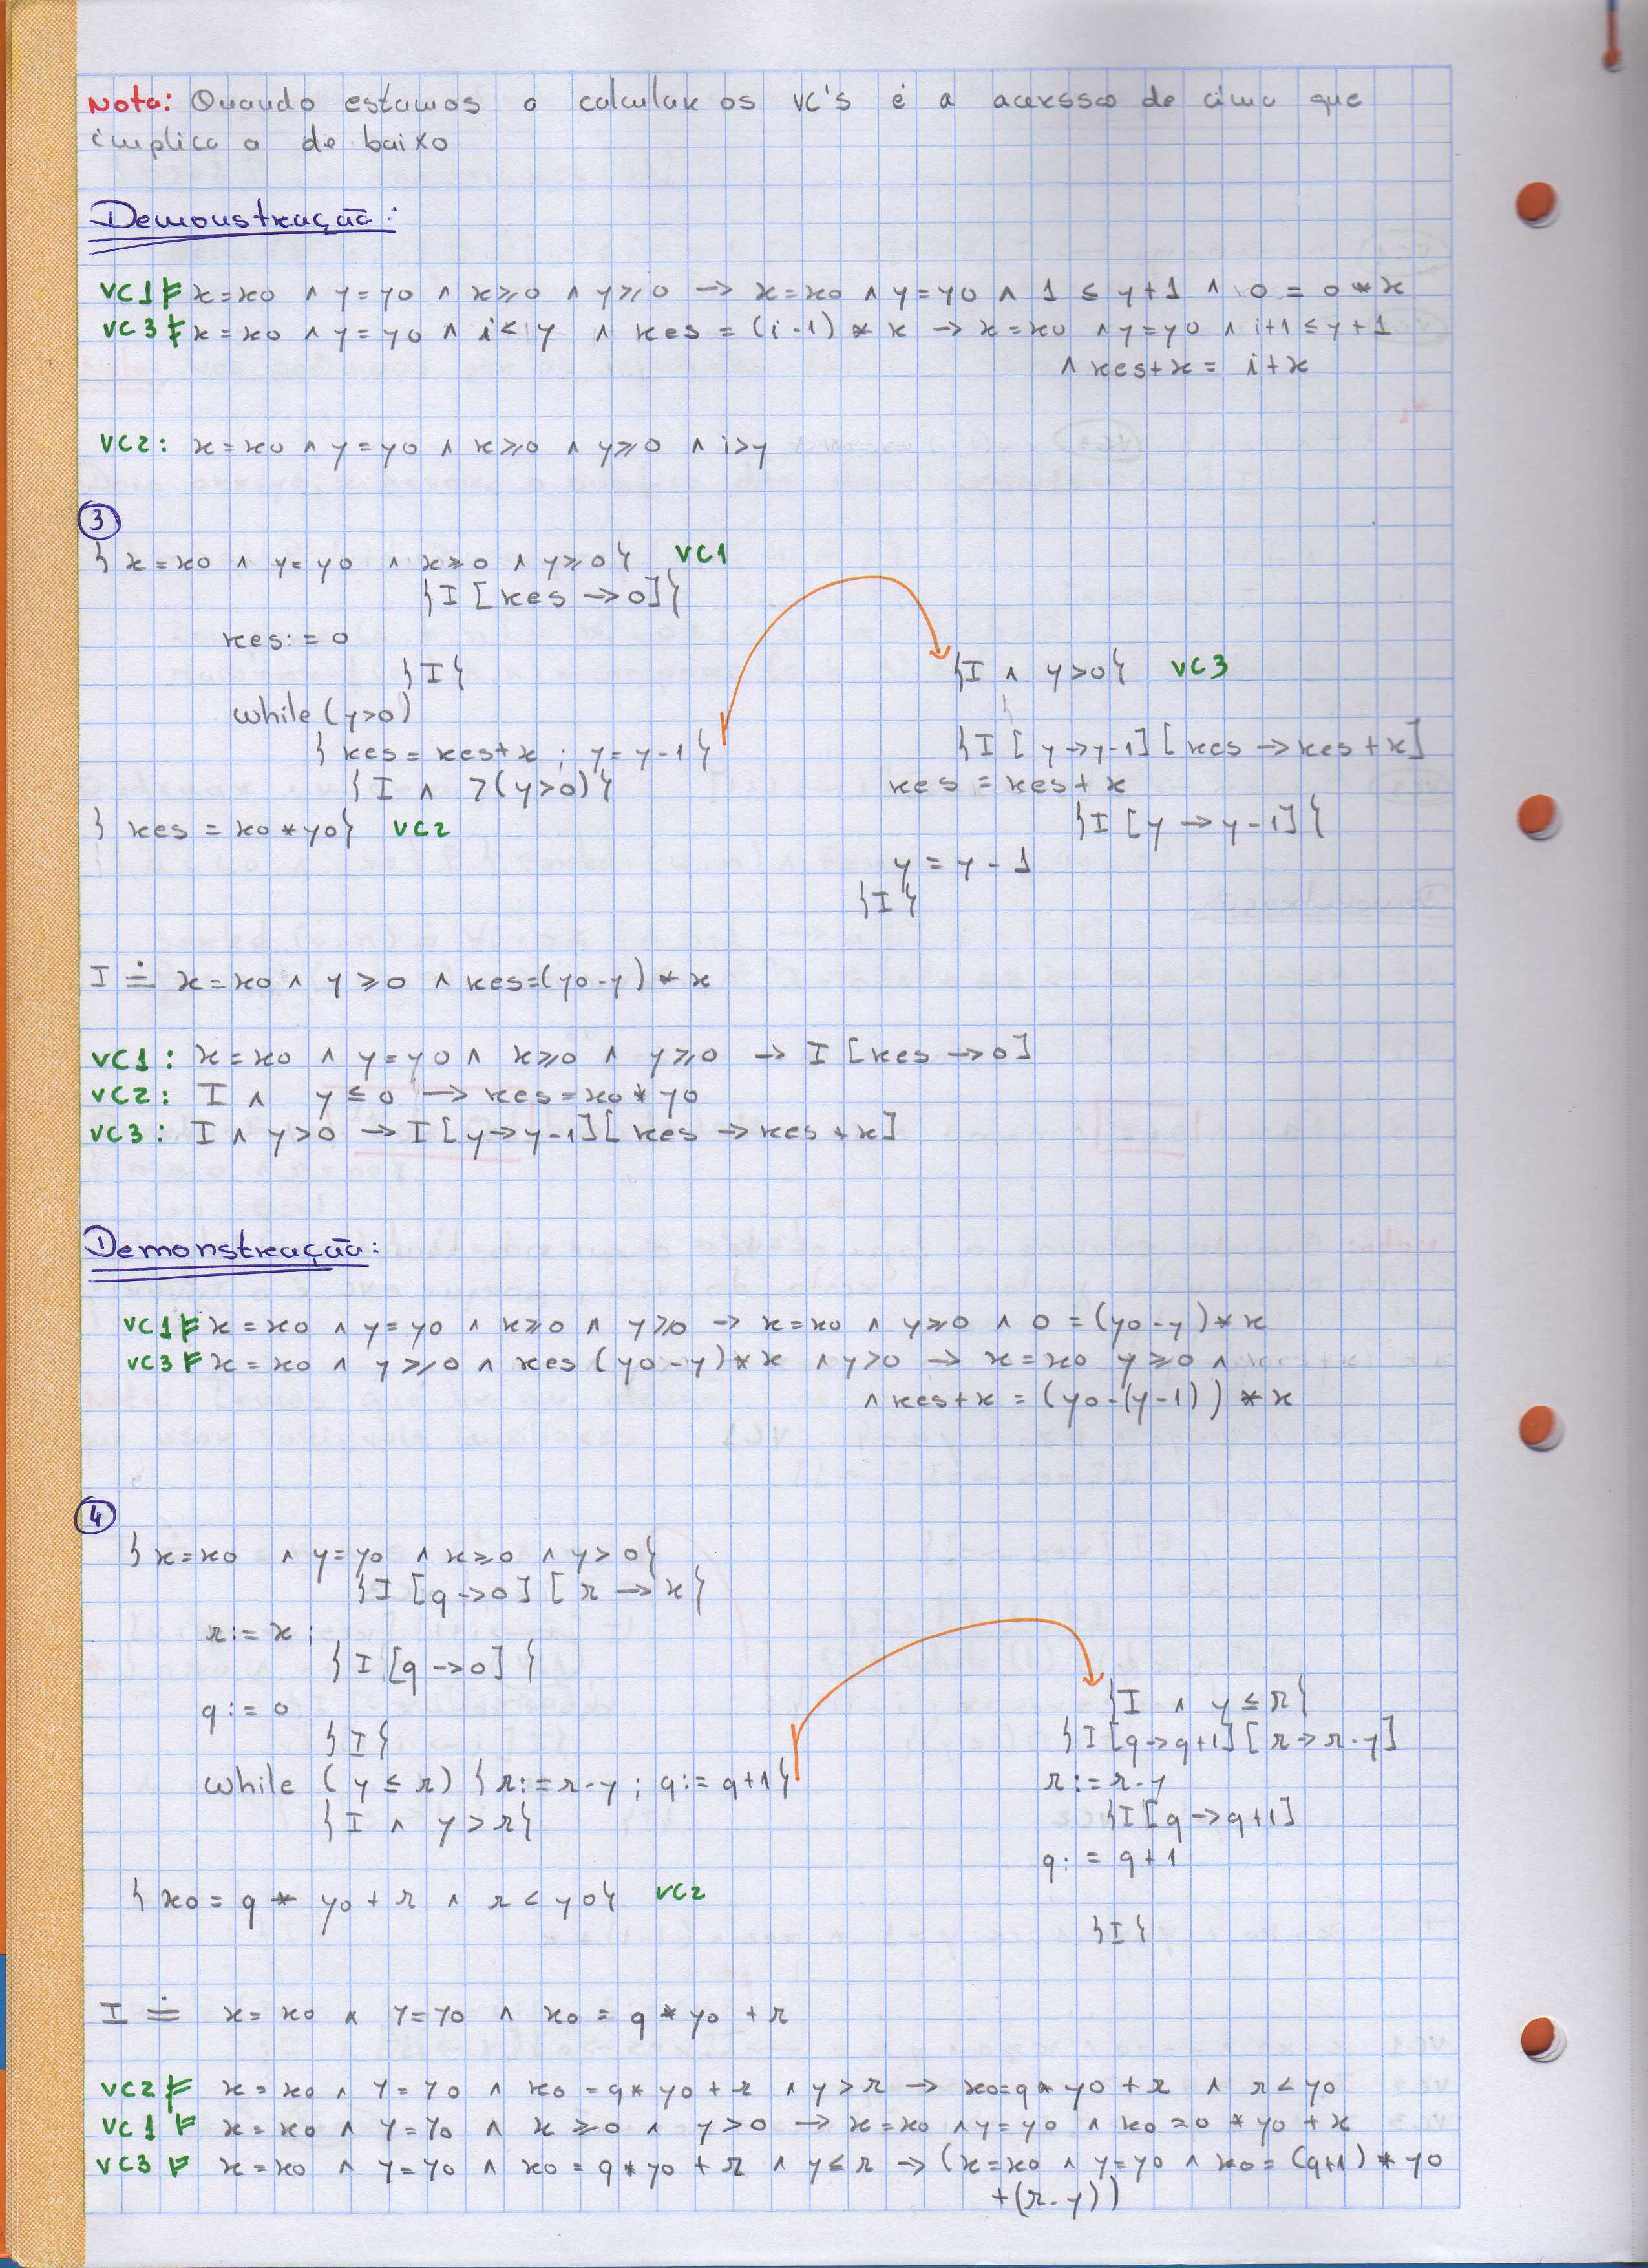 Nota: Quando estamos a calcular os VC's é a acerssão de cima que
implica a de baixo
Demonstração:
VC1 ⊧ x=x0 ∧ y=y0 ∧ x≥0 ∧ y≥0 → x=x0 ∧ y=y0 ∧ 1 ≤ y+1 ∧ 0 = 0*x
VC3 ⊧ x=x0 ∧ y=y0 ∧ i≤y ∧ res = (i-1) * x → x=x0 ∧ y=y0 ∧ i+1 ≤ y+1
∧ res+x = i+x
VC2: x=x0 ∧ y=y0 ∧ x≥0 ∧ y≥0 ∧ i>y
3
{ x=x0 ∧ y=y0 ∧ x≥0 ∧ y≥0 } VC1
{I [res → 0]}
res := 0
{I}
while (y>0)
{ res = res+x ; y = y-1 }
{I ∧ ¬(y>0)}
{ res = x0*y0 } VC2
{I ∧ y>0} VC3
{I [y→y-1] [res → res+x]
res = res+x
{I [y → y-1]}
y = y-1
{I}
I ≐ x=x0 ∧ y≥0 ∧ res=(y0-y) * x
VC1: x=x0 ∧ y=y0 ∧ x≥0 ∧ y≥0 → I [res → 0]
VC2: I ∧ y≤0 → res=x0*y0
VC3: I ∧ y>0 → I [y→y-1] [res → res+x]
Demonstração:
VC1 ⊧ x=x0 ∧ y=y0 ∧ x≥0 ∧ y≥0 → x=x0 ∧ y≥0 ∧ 0 = (y0-y)*x
VC3 ⊧ x=x0 ∧ y≥0 ∧ res(y0-y)*x ∧ y>0 → x=x0 y≥0 ∧
∧ res+x = (y0-(y-1)) * x
4
{ x=x0 ∧ y=y0 ∧ x≥0 ∧ y>0 }
{I [q→0] [r → x}
r := x;
{I [q→0] }
q := 0
{I}
while (y ≤ r) {r := r-y ; q := q+1}
{I ∧ y>r}
{ x0 = q * y0 + r ∧ r < y0} VC2
{I ∧ y ≤ r}
{I [q→q+1] [r→r-y]
r := r-y
{I [q→q+1]
q := q+1
{I}
I ≐ x=x0 ∧ y=y0 ∧ x0 = q*y0 + r
VC2 ⊧ x=x0 ∧ y=y0 ∧ x0 = q*y0 + r ∧ y>r → x0=q*y0 + r ∧ r<y0
VC1 ⊧ x=x0 ∧ y=y0 ∧ x≥0 ∧ y>0 → x=x0 ∧ y=y0 ∧ x0 = 0*y0 + x
VC3 ⊧ x=x0 ∧ y=y0 ∧ x0 = q*y0 + r ∧ y≤r → (x=x0 ∧ y=y0 ∧ x0 = (q+1)*y0
+(r-y))